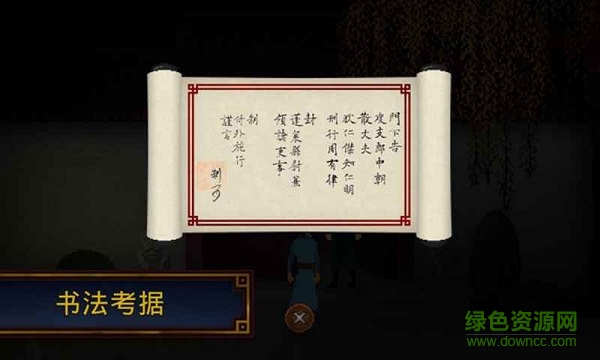 門下告
度支郎中朝
散大夫
狄仁傑知仁明
刑行用有律
封
蓬萊縣尉兼
領諸吏事
制
付外施行
謹言
制可
书法考据
绿色资源网
www.downcc.com